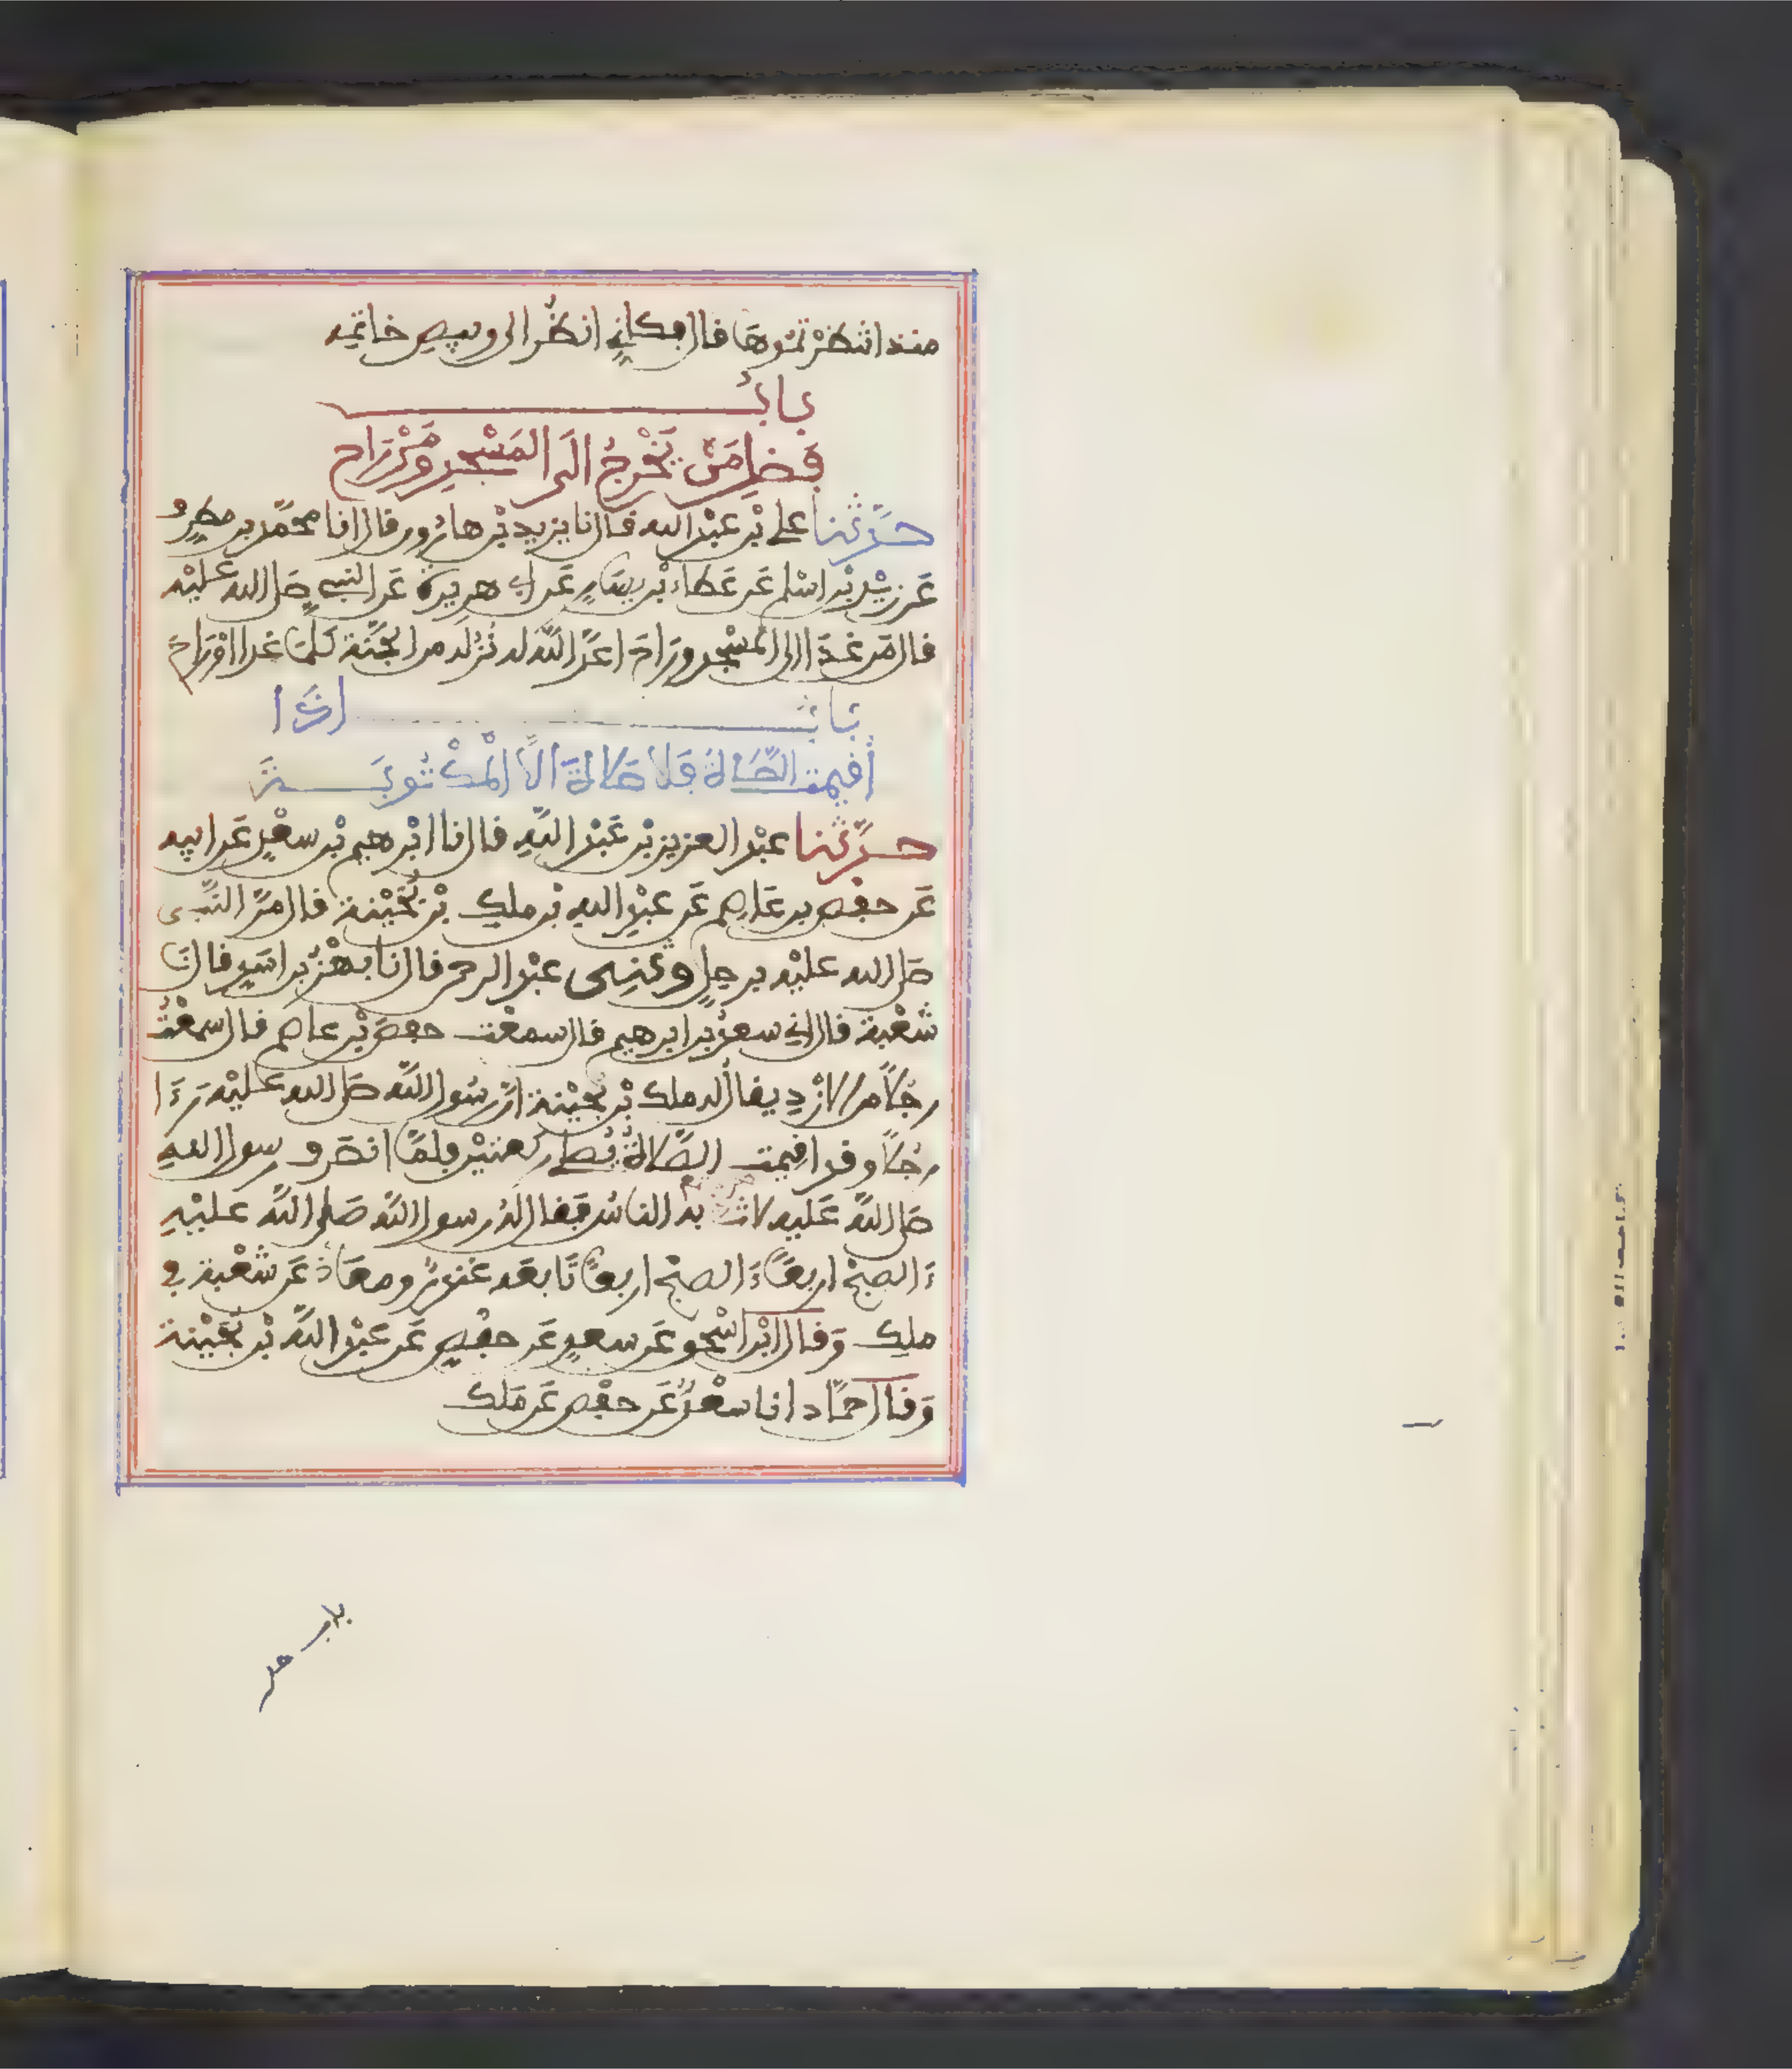 منذ انتظرتموها قال فكاني انظر الى وبيص خاتمه
باب
فضل من يخرج الى المسجد ومن راح
حدثنا علي بن عبد الله قال نا يزيد بن هارون قال انا محمد بن مطرف
عن زيد بن اسلم عن عطاء بن يسار عن ابي هريرة عن النبي صلى الله عليه
قال من غدا الى المسجد وراح اعد الله له نزله من الجنة كلما غدا او راح
باب اذا
اقيمت الصلاة فلا صلاة الا المكتوبة
حدثنا عبد العزيز بن عبد الله قال نا ابرهيم بن سعد عن ابيه
عن حفص بن عاصم عن عبد الله بن ملك بن بحينة قال مر النبي
صلى الله عليه برجل وثنى عبد الرحمن قال نا بهز بن اسد قال نا
شعبة قال اني سعد بن ابرهيم قال سمعت حفص بن عاصم قال سمعت
رجلا من الازد يقال له ملك بن بحينة ان رسول الله صلى الله عليه رءا
رجلا وقد اقيمت الصلاة يصلي ركعتين فلما انصرف رسول الله
صلى الله عليه لاث به الناس فقال له رسول الله صلى الله عليه
ءالصبح اربعا ءالصبح اربعا تابعه غندر ومعاذ عن شعبة في
ملك وقال ابن اسحق عن سعد عن حفص عن عبد الله بن بحينة
وقال حماد انا سعد عن حفص عن ملك